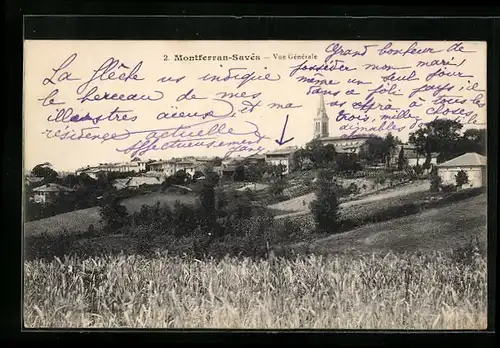 2 Montferran-Savès — Vue Générale
La flèche vs indique
le berceau de mes
illustres aïeux; et ma
résidence actuelle
affectueusement
Grand bonheur de
posséder mon mari
même un seul jour
dans ce joli pays, il
vs offra à tous les
trois, mille choses
aimables